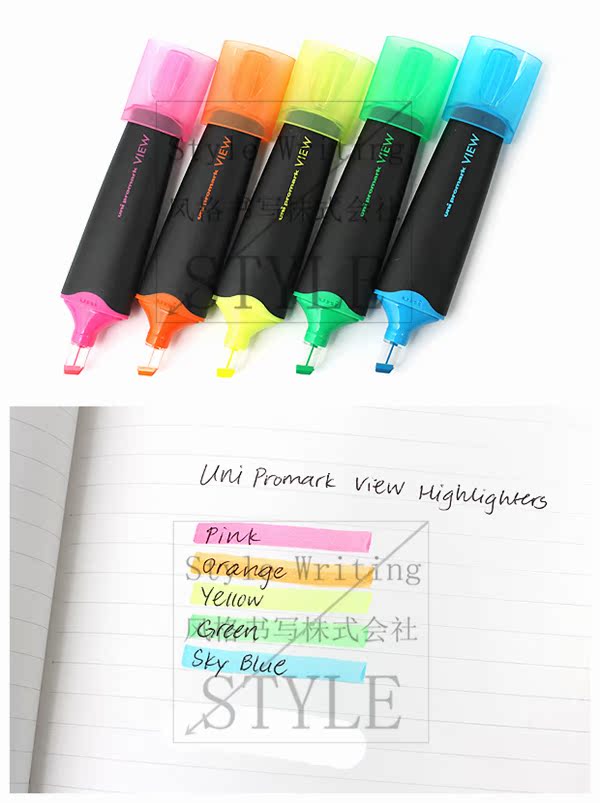 uni promark VIEW
uni promark VIEW
uni promark VIEW
uni promark VIEW
uni promark VIEW
Style Writing
风格书写株式会社
STYLE
Uni Promark View Highlighters
Pink
Orange
Style Writing
Yellow
Green
风格书写株式会社
Sky Blue
STYLE